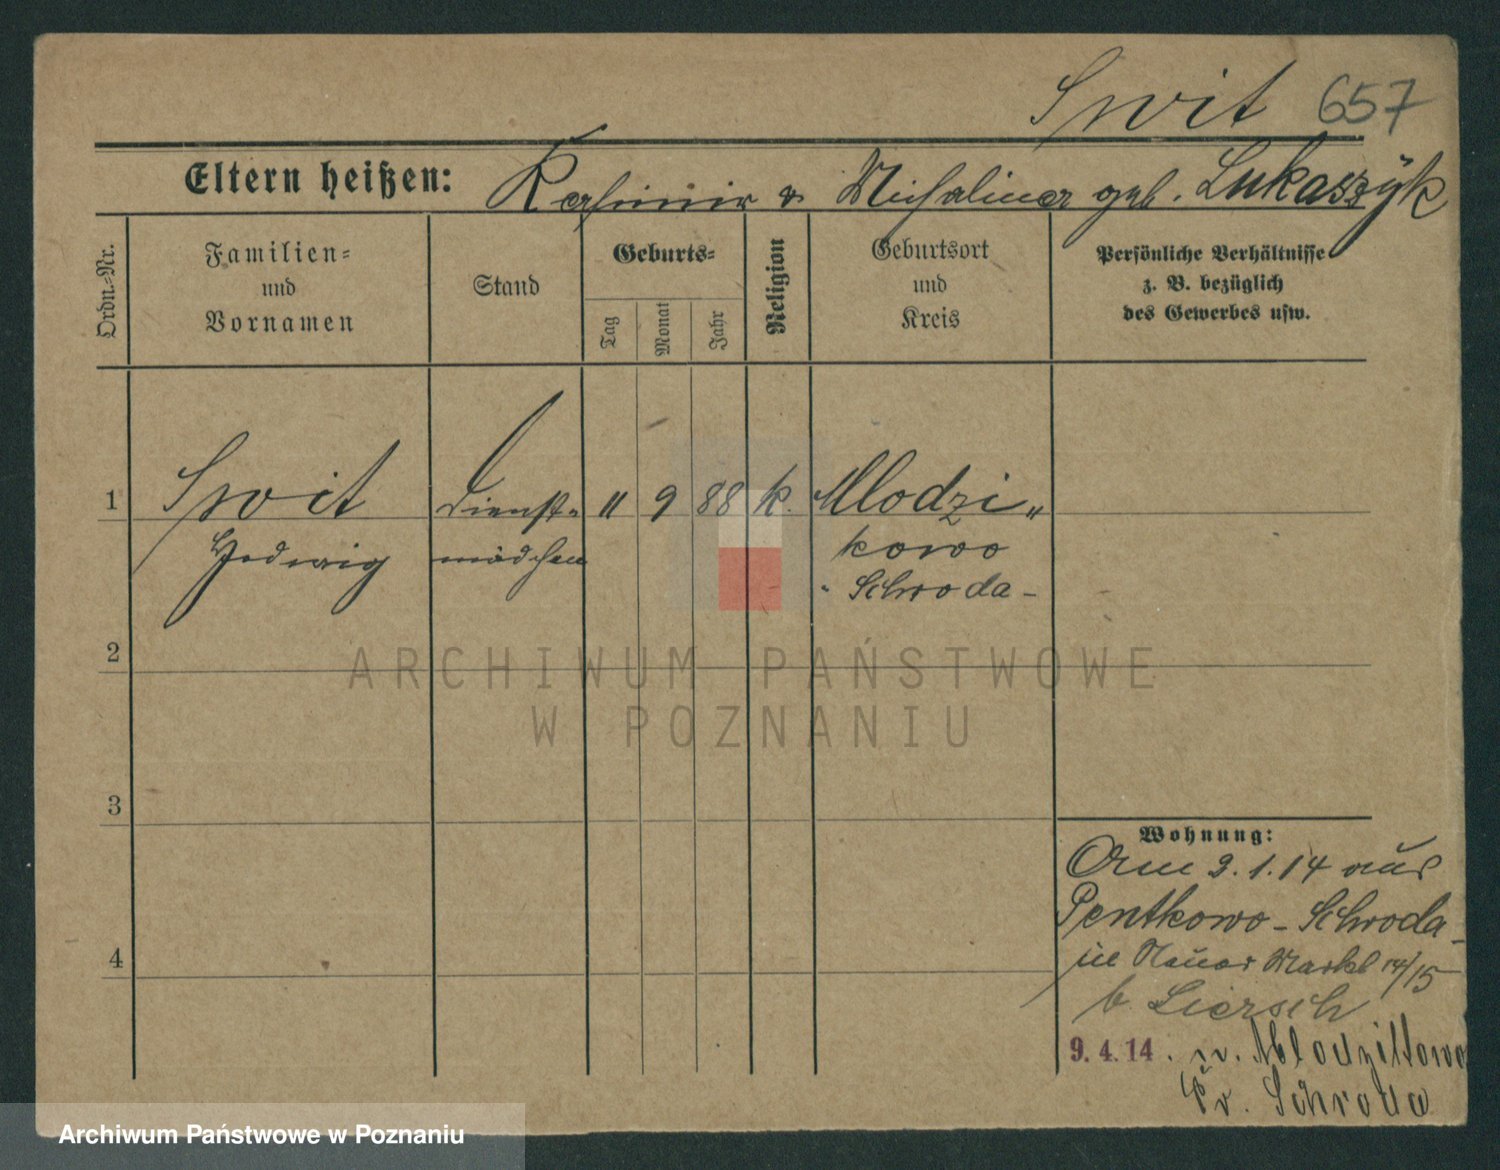 Swit 657
Eltern heißen: Kasimir u Michalina geb. Lukaszyk
Ordn.-Nr.
Familien-
und
Vornamen
Stand
Geburts-
Tag
Monat
Jahr
Religion
Geburtsort
und
Kreis
Persönliche Verhältnisse
z. B. bezüglich
des Gewerbes usw.
1 Swit Dienst- 11 9 88 k. Mlodzi„
Hedwig mädchen kowo
- Schroda -
2
ARCHIWUM PAŃSTWOWE
W POZNANIU
3
Wohnung:
Am 3.1.14 aus
Pentkowo - Schroda -
in Neuer Markt 14/15
b. Liersch
4
9.4.14. n. Mlodzikowo
Kr. Schroda
Archiwum Państwowe w Poznaniu